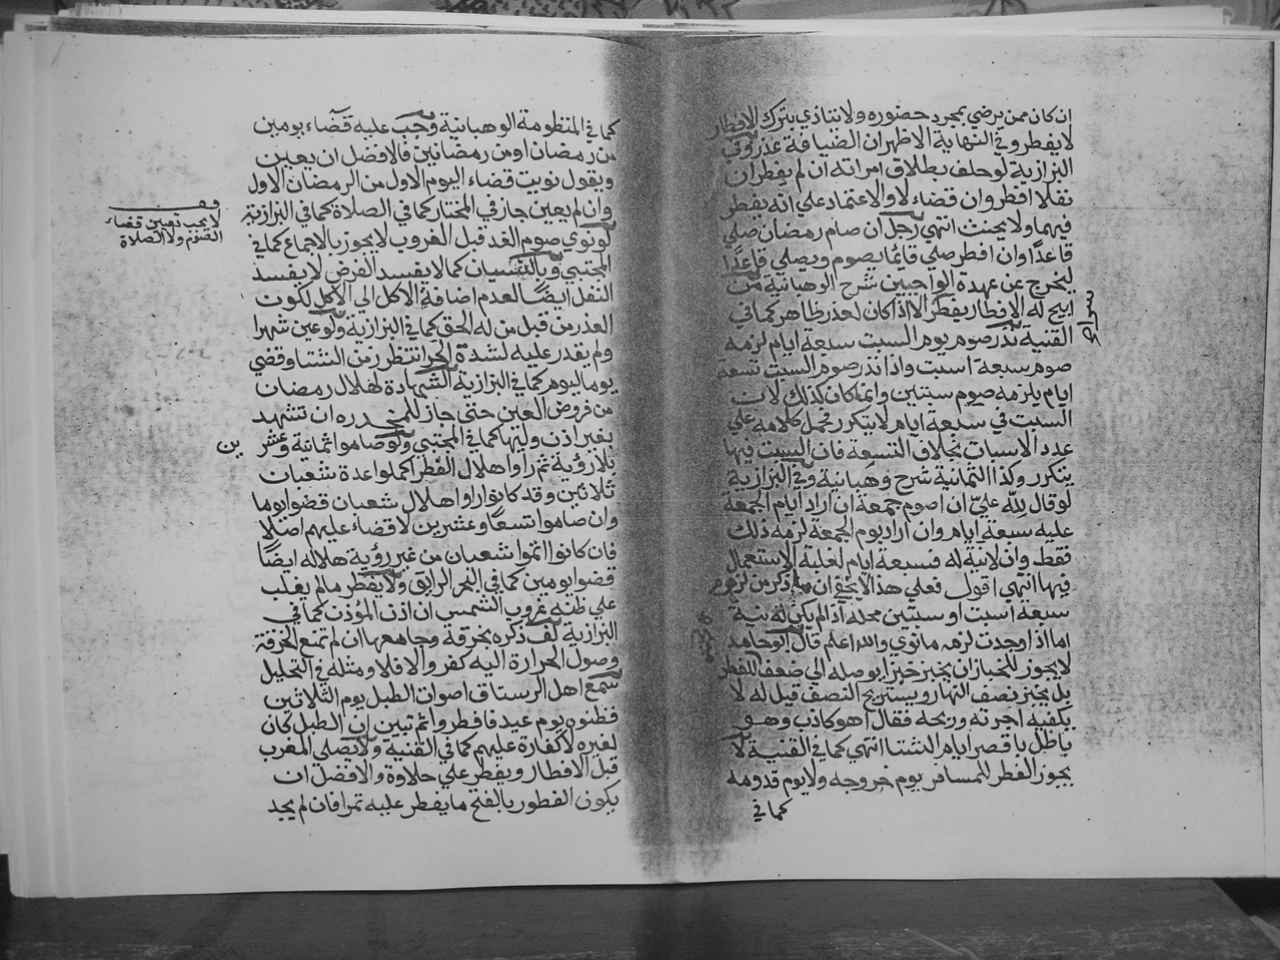 ان كان ممن يرضي بمجرد حضوره ولا يتاذي بترك الافطار
لا يفطر وفي النهاية الاظهر ان الضيافة عذر وفي
البزازية لو حلف بطلاق امراته ان لم يفطر ان
نفلا افطر وان قضاء لا والاعتماد علي انه يفطر
فيهما ولا يحنث انتهي رجل ان صام رمضان صلي
قاعدا وان افطر صلي قايما يصوم ويصلي قاعدا
ليخرج عن عهدة الواجبين شرح الوهبانية من
ابيح له الافطار يفطر الا اذا كان لعذر ظاهر كما في
سرا
القنية نذر صوم يوم السبت سبعة ايام لزمه
صوم سبعة اسبت واذا نذر صوم السبت تسعة
ايام يلزمه صوم سبتين وانما كان كذلك لان
السبت في سبعة ايام لا يتكرر فحمل كلامه علي
عدد الاسبات بخلاف التسعة فان السبت فيها
يتكرر وكذا الثمانية شرح وهبانية وفي البزازية
لو قال لله علي ان اصوم جمعة ان اراد ايام الجمعة
عليه سبعة ايام وان اراد يوم الجمعة لزمه ذلك
فقط وان لا نية له فسبعة ايام لغلبة الاستعمال
فيها انتهي اقول فعلي هذا لا يخفي ان ما ذكر من لزوم
سبعة اسبت او سبتين محله اذا لم يكن له نية
اما اذا وجدت لزمه ما نوي والله اعلم قال ابو حامد
لا يجوز للخباز ان يخبز خبزا يوصله الي ضعف للفطر
بل يخبز نصف النهار ويستريح النصف قيل له لا
يكفيه اجرته وربحه فقال هو كاذب وهو
باطل باقصر ايام الشتا انتهي كما في القنية لا
يجوز الفطر للمسافر يوم خروجه ولا يوم قدومه
كما في
كما في المنظومة الوهبانية وجب عليه قضاء يومين
من رمضان او من رمضانين فالافضل ان يعين
ويقول نويت قضاء اليوم الاول من الرمضان الاول
وان لم يعين جاز في المختار كما في الصلاة كما في البزازية
لا يجب تعيين قضاء
الصوم ولا الصلاة
لو نوي صوم الغد قبل الغروب لا يجوز بالاجماع كما في
المجتبي وبالنسيان كما لا يفسد الفرض لا يفسد
النفل ايضا لعدم اضافة الاكل الي الاكل لكون
العذر من قبل من له الحق كما في البزازية ولو عين شهرا
ولم يقدر عليه لشدة الحر انتظر زمن الشتا وقضي
يوما ليوم كما في البزازية الشهادة لهلال رمضان
من فروض العين حتي جاز للمخدره ان تشهد
بغير اذن وليها كما في المجتبي ولو صاموا ثمانية وعشر
ين
بلا رؤية ثم راوا هلال الفطر اكملوا عدة شعبان
ثلاثين وقد كانوا راوا هلال شعبان قضوا يوما
وان صاموا تسعا وعشرين لا قضاء عليهم اصلا
فان كانوا اتموا شعبان من غير رؤية هلاله ايضا
قضوا يومين كما في البحر الرايق ولا يفطر ما لم يغلب
علي ظنه غروب الشمس ان اذن المؤذن كما في
البزازية لف ذكره بخرقة وجامعها ان لم تمنع الخرقة
وصول الحرارة اليه كفر والا فلا ومثله في التحليل
سمع اهل الرستاق اصوات الطبل يوم الثلاثين
فظنوه يوم عيد فافطروا ثم تبين ان الطبل كان
لغيره لا كفارة عليهم كما في القنية ولا يصلي المغرب
قبل الافطار ويفطر علي حلاوة والافضل ان
يكون الفطور بالفتح ما يفطر عليه تمرا فان لم يجد